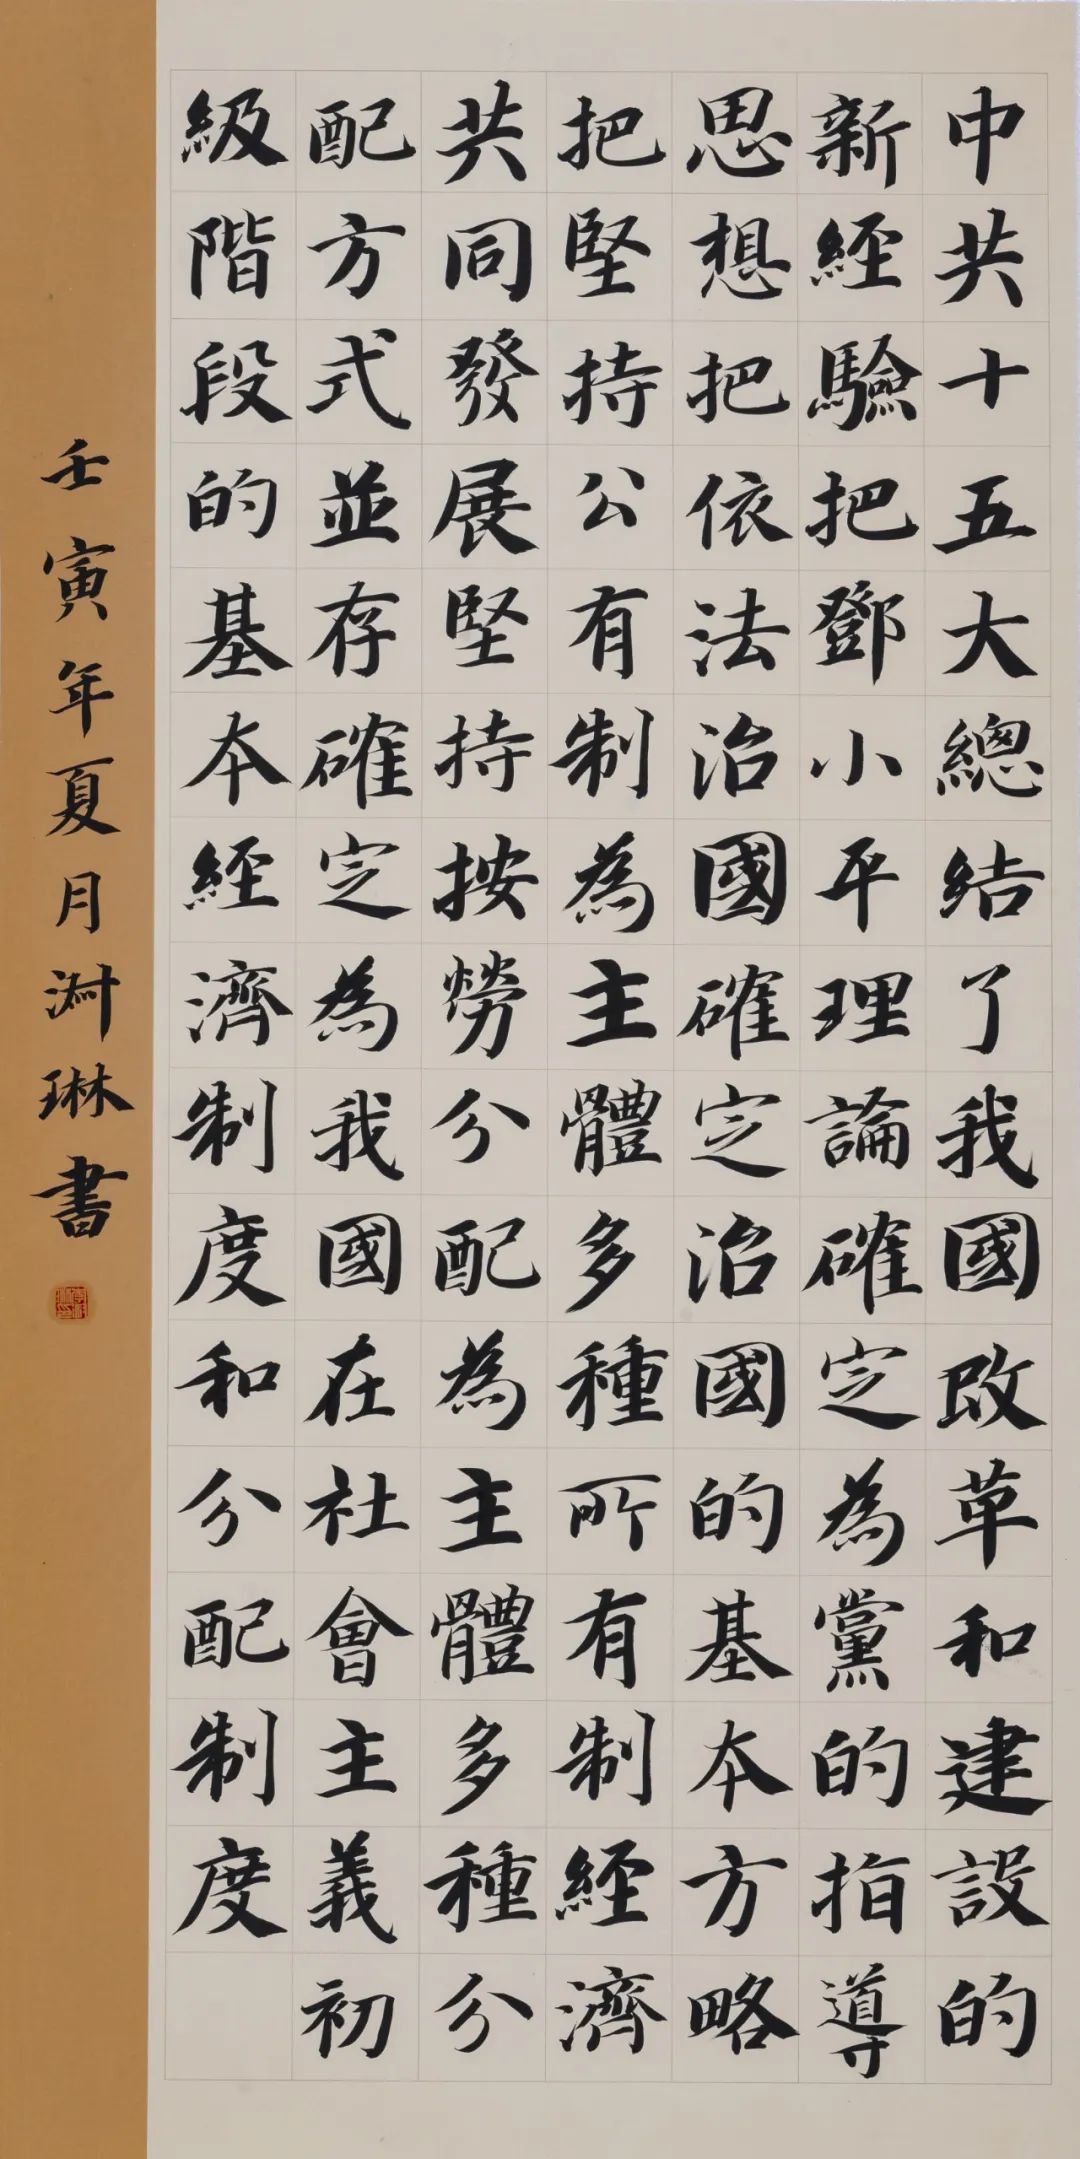 中共十五大總結了我國改革和建設的
新經驗把鄧小平理論確定為黨的指導
思想把依法治國確定治國的基本方略
把堅持公有制為主體多種所有制經濟
共同發展堅持按勞分配為主體多種分
配方式並存確定為我國在社會主義初
級階段的基本經濟制度和分配制度
壬寅年夏月淑琳書